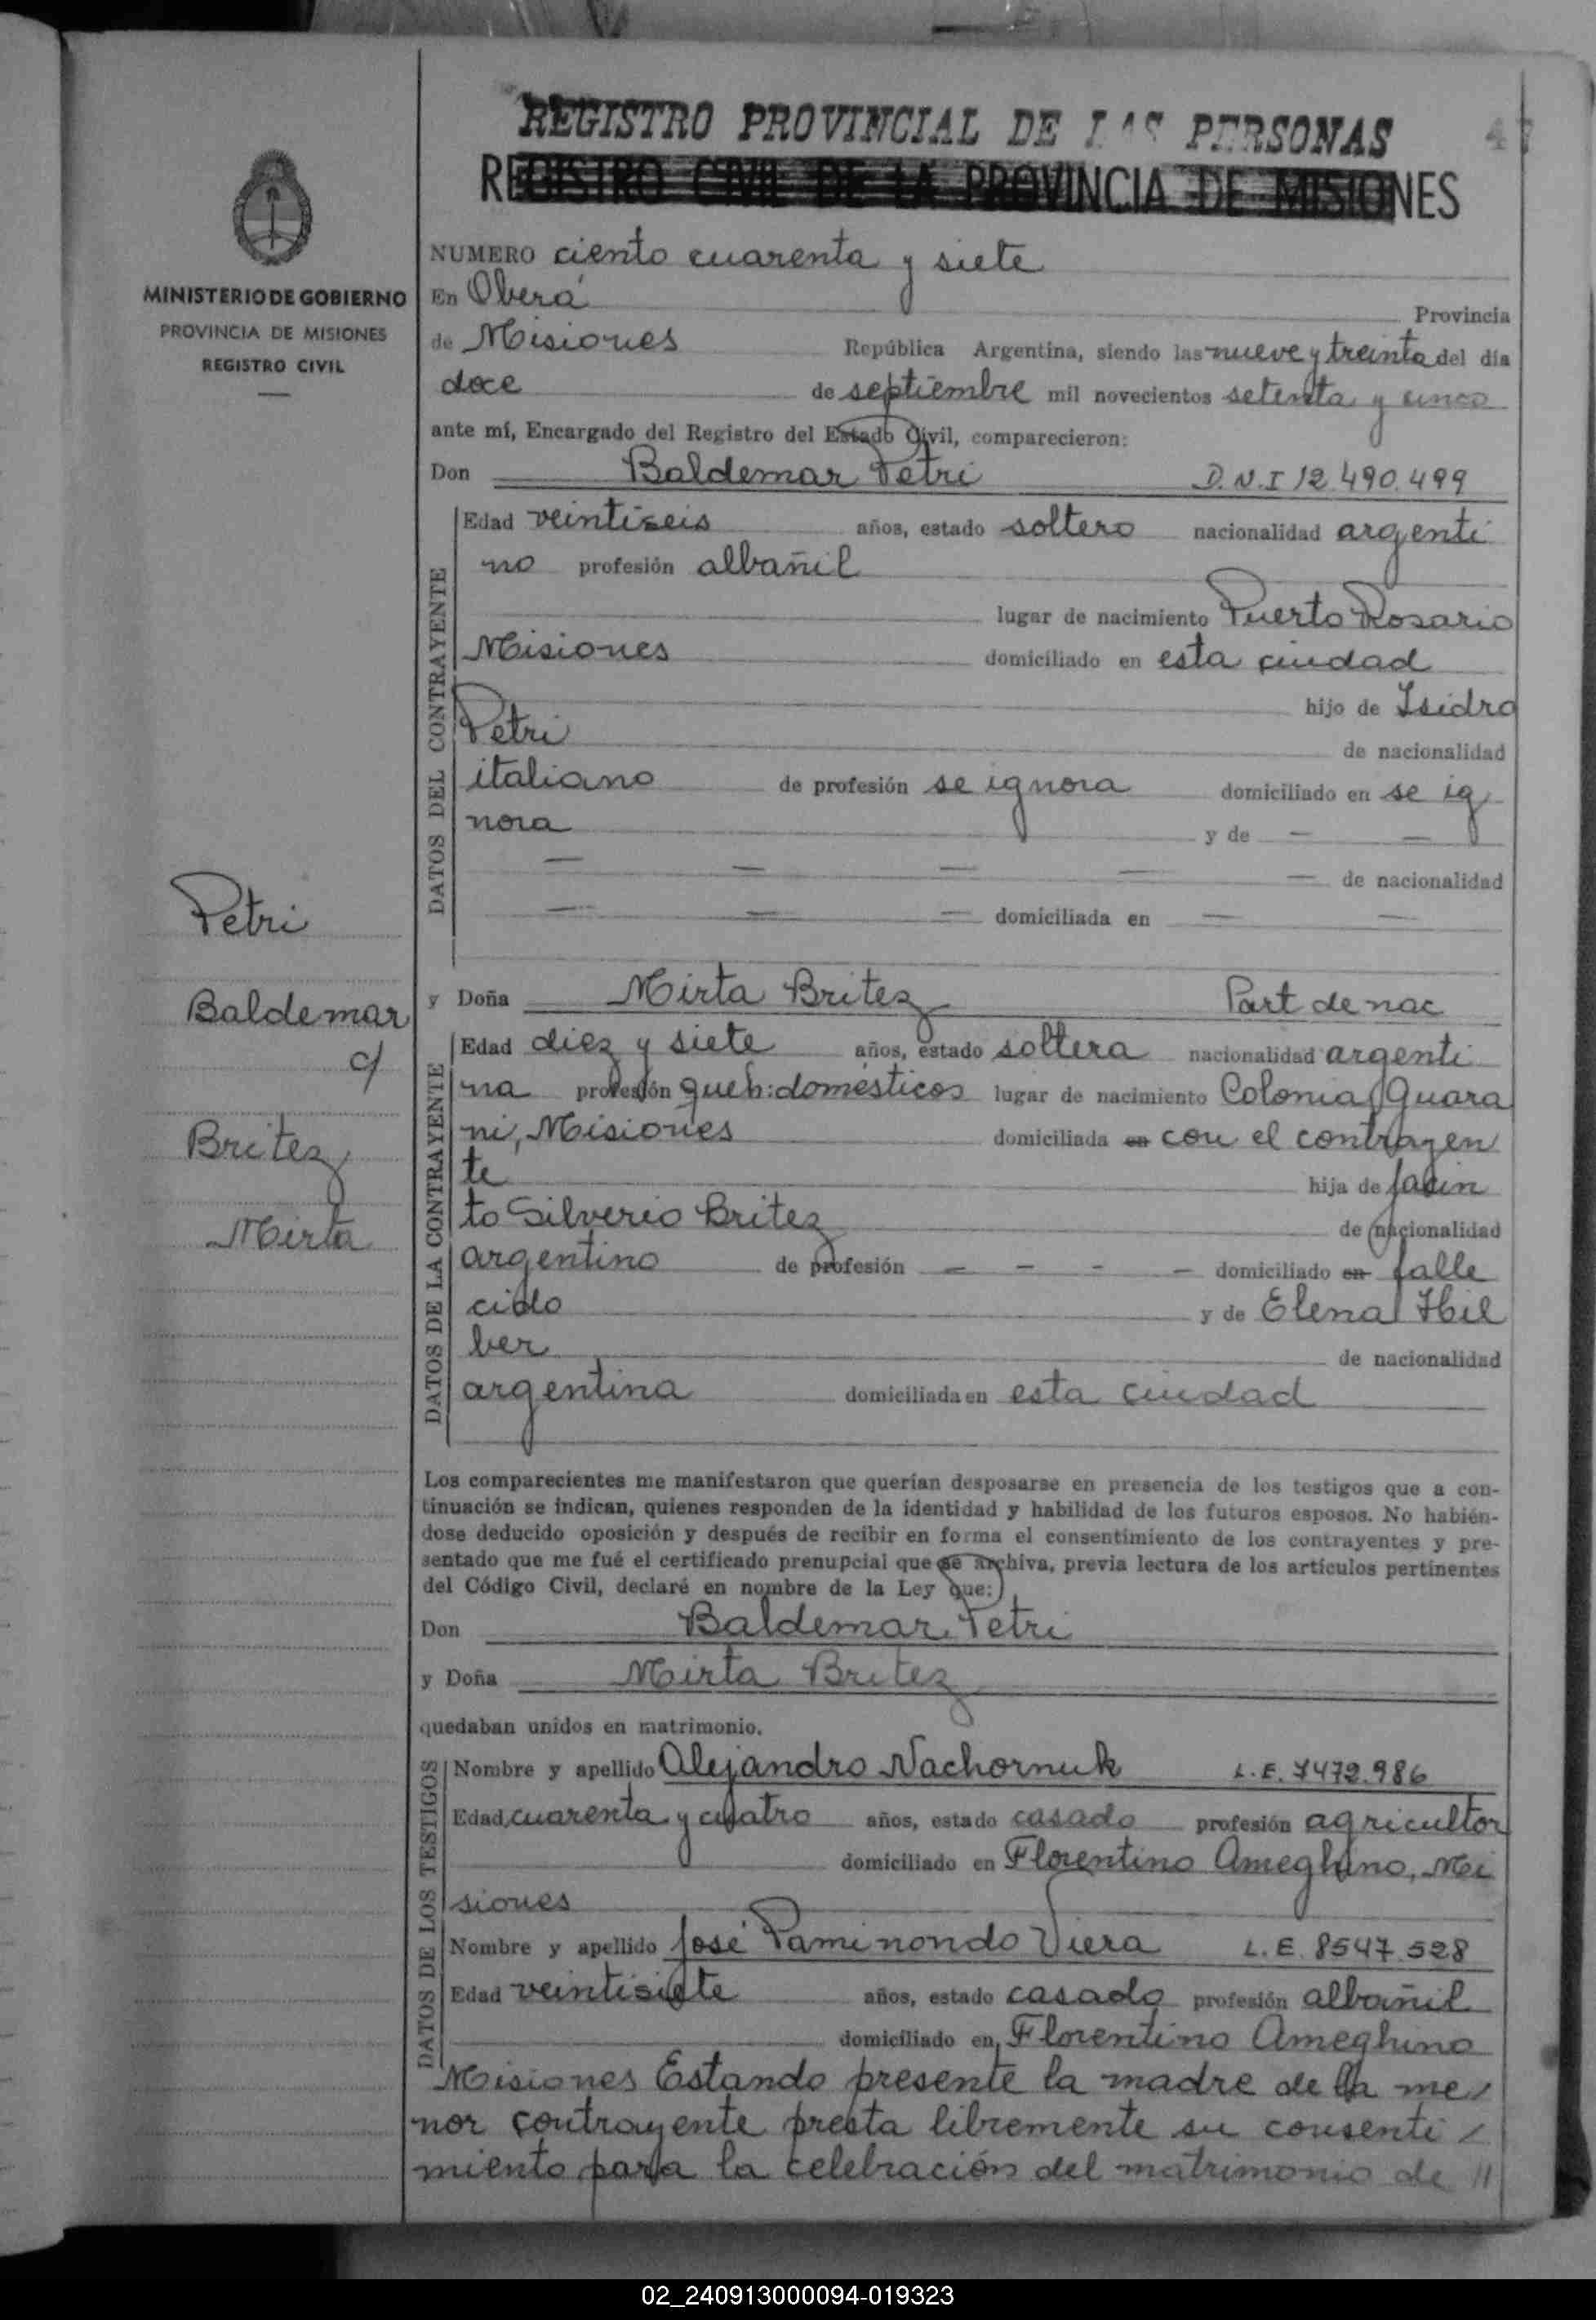 REGISTRO PROVINCIAL DE LAS PERSONAS
47
REGISTRO CIVIL DE LA PROVINCIA DE MISIONES
MINISTERIO DE GOBIERNO
PROVINCIA DE MISIONES
REGISTRO CIVIL
NUMERO ciento cuarenta y siete
En Oberá Provincia
de Misiones República Argentina, siendo las nueve y treinta del día
doce de septiembre mil novecientos setenta y cinco
ante mí, Encargado del Registro del Estado Civil, comparecieron:
Don Baldemar Petri D.N.I 12.490.499
DATOS DEL CONTRAYENTE
Edad veintiseis años, estado soltero nacionalidad argenti
no profesión albañil
lugar de nacimiento Puerto Rosario
Misiones domiciliado en esta ciudad
hijo de Isidro
Petri de nacionalidad
italiano de profesión se ignora domiciliado en se ig
nora y de — —
— — — — — de nacionalidad
— — — domiciliada en — —
Petri
Baldemar
c/
Britez
Mirta
y Doña Mirta Britez Part de nac
DATOS DE LA CONTRAYENTE
Edad diez y siete años, estado soltera nacionalidad argenti
na profesión queh: domésticos lugar de nacimiento Colonia Guara
ni, Misiones domiciliada en con el contrayen
te hija de Jacin
to Silverio Britez de nacionalidad
argentino de profesión — — — — domiciliado en falle
cido y de Elena Hil
ber de nacionalidad
argentina domiciliada en esta ciudad
Los comparecientes me manifestaron que querían desposarse en presencia de los testigos que a con-
tinuación se indican, quienes responden de la identidad y habilidad de los futuros esposos. No habién-
dose deducido oposición y después de recibir en forma el consentimiento de los contrayentes y pre-
sentado que me fué el certificado prenupcial que se archiva, previa lectura de los artículos pertinentes
del Código Civil, declaré en nombre de la Ley que:
Don Baldemar Petri
y Doña Mirta Britez
quedaban unidos en matrimonio.
DATOS DE LOS TESTIGOS
Nombre y apellido Alejandro Nachornuk L.E. 7472.986
Edad cuarenta y cuatro años, estado casado profesión agricultor
domiciliado en Florentino Ameghino, Mi
siones
Nombre y apellido José Paminondo Viera L.E. 8547.528
Edad veintisiete años, estado casado profesión albañil
domiciliado en Florentino Ameghino
Misiones Estando presente la madre de la me/
nor contrayente presta libremente su consenti/
miento para la celebración del matrimonio de //
02_240913000094-019323